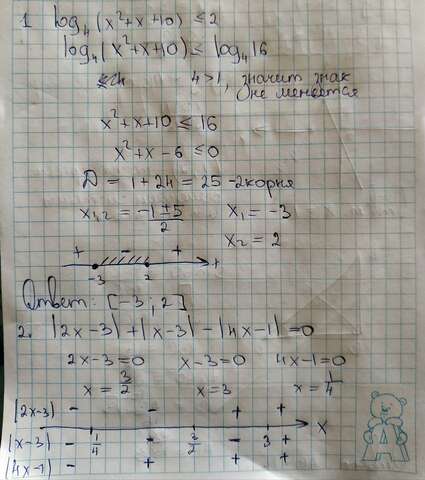 1 log₄(x²+x+10) ≤ 2
log₄(x²+x+10) ≤ log₄16
4>1, значит знак
не меняется
x²+x+10 ≤ 16
x²+x-6 ≤ 0
Д = 1+24 = 25 - 2 корня
x₁,₂ = (-1±5)/2 x₁ = -3
x₂ = 2
+ - +
-3 2
Ответ: [-3; 2]
2. |2x-3|+|x-3|-|4x-1|=0
2x-3=0 x-3=0 4x-1=0
x = 3/2 x=3 x = 1/4
|2x-3) - - + +
x
(x-3) - 1/4 - 3/2 - 3 +
(4x-1) - + + +